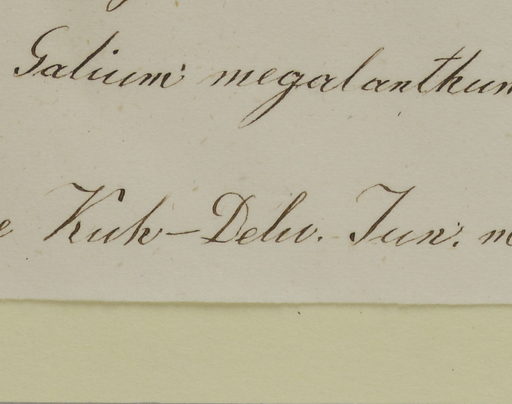 Galium megalanthum
e Kuh-Delu. Jun. m